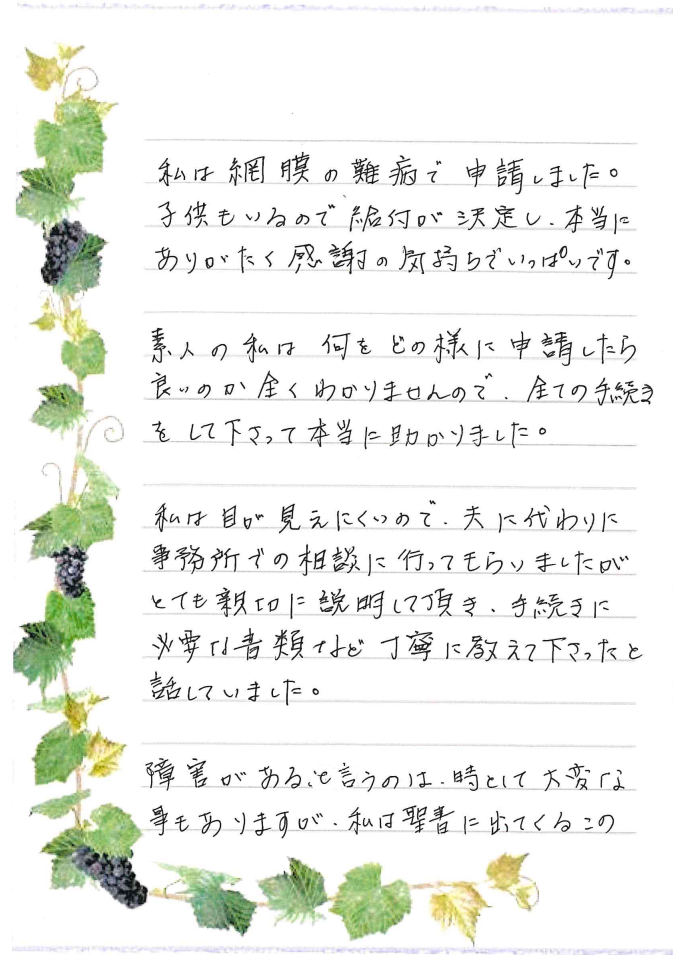 私は網膜の難病で申請しました。
子供もいるので給付が決定し、本当に
ありがたく感謝の気持ちでいっぱいです。
素人の私は何をどの様に申請したら
良いのか全くわかりませんので、全ての手続き
をして下さって本当に助かりました。
私は目が見えにくいので、夫に代わりに
事務所での相談に行ってもらいましたが
とても親切に説明して頂き、手続きに
必要な書類など丁寧に教えて下さったと
話していました。
障害があると言うのは、時として大変な
事もありますが、私は聖書に出てくるこの